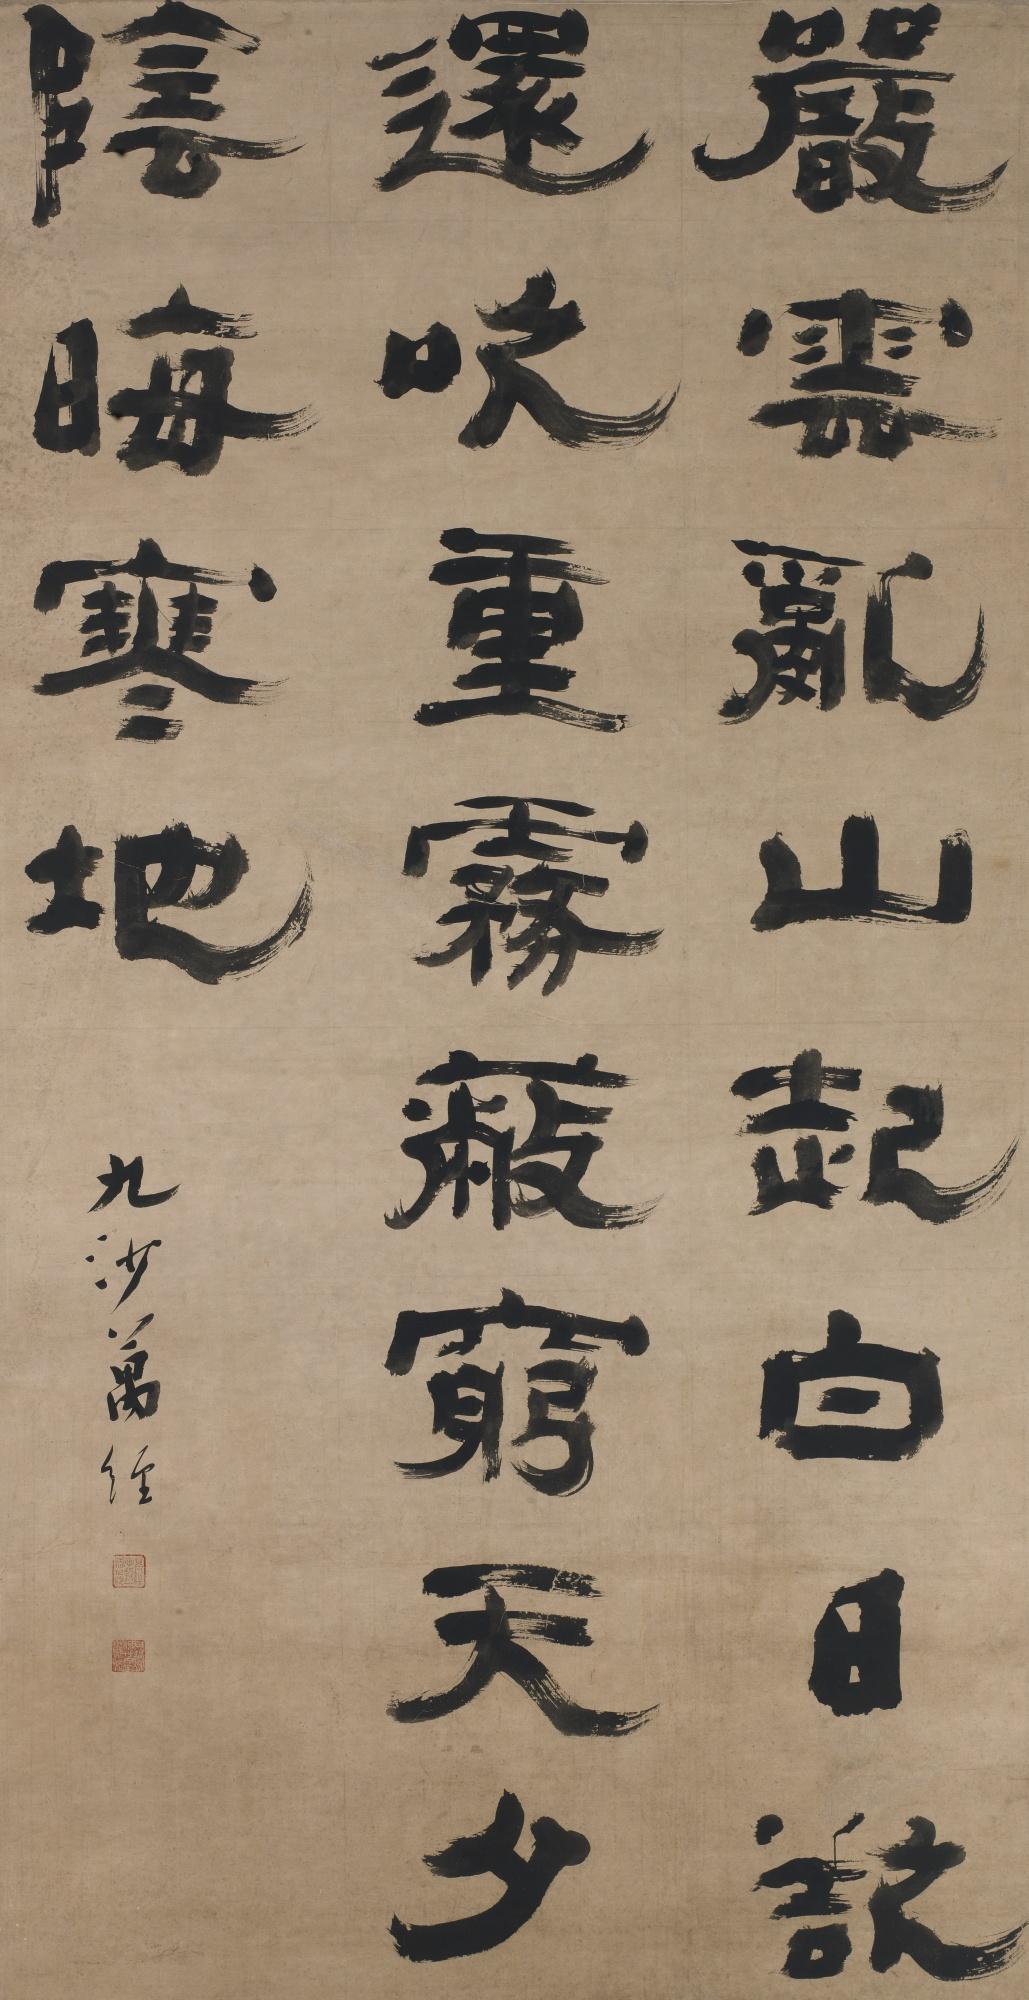 嚴雲亂山起白日欲
還吹重霧蔽窮天夕
陰晦寒地
九沙萬經